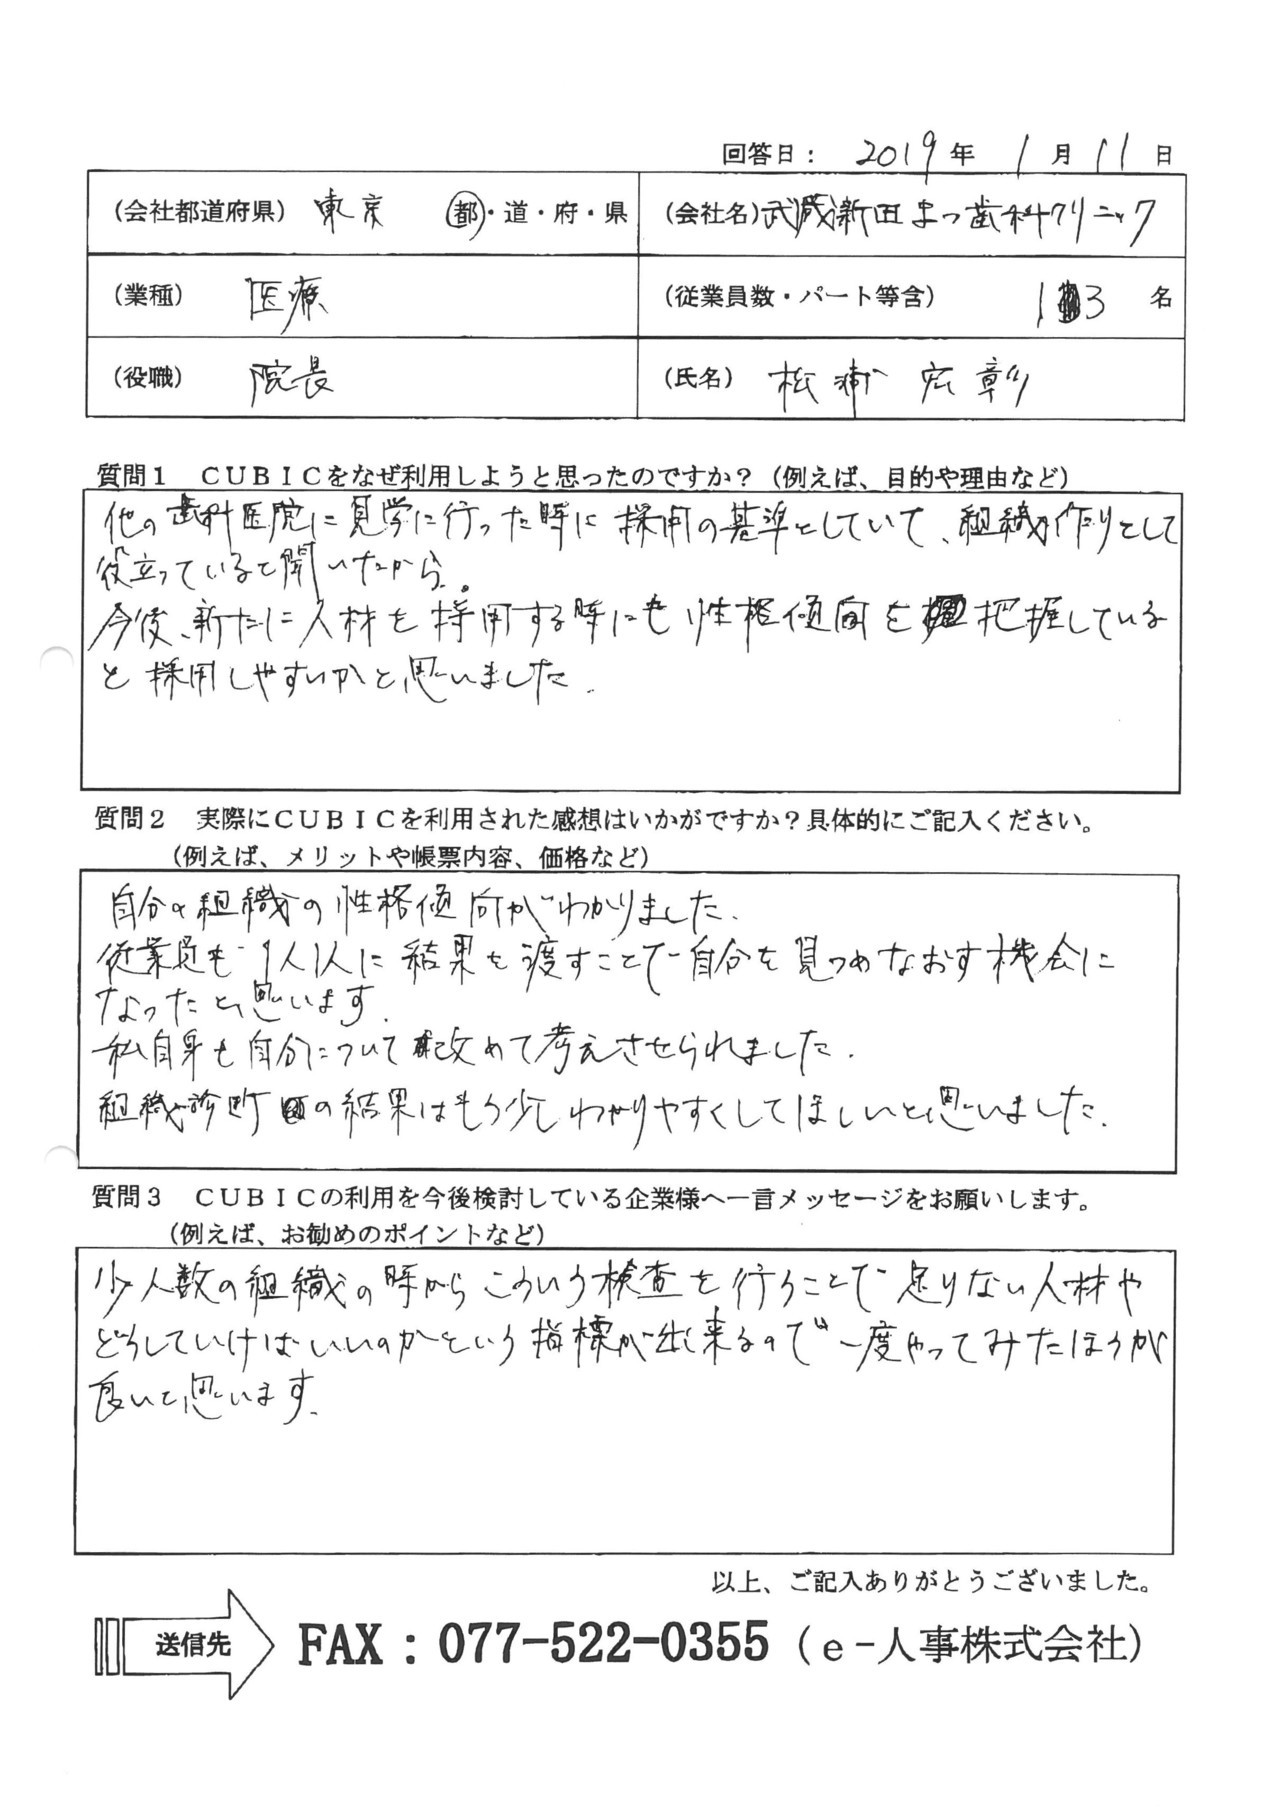 回答日： 2019 年 1 月 11 日
(会社都道府県) 東京 都・道・府・県 (会社名) 武蔵新田まつ歯科クリニック
(業種) 医療 (従業員数・パート等含) 13 名
(役職) 院長 (氏名) 松浦 宏彰
質問１ ＣＵＢＩＣをなぜ利用しようと思ったのですか？（例えば、目的や理由など）
他の歯科医院に見学に行った時に採用の基準としていて、組織作りとして
役立っていると聞いたから。
今後、新たに人材を採用する時にも性格傾向を把握している
と採用しやすいかと思いました.
質問２ 実際にＣＵＢＩＣを利用された感想はいかがですか？具体的にご記入ください。
（例えば、メリットや帳票内容、価格など）
自分の組織の性格傾向がわかりました.
従業員も1人1人に結果を渡すことで自分を見つめなおす機会に
なったと思います.
私自身も自分について改めて考えさせられました.
組織診断の結果はもう少しわかりやすくしてほしいと思いました.
質問３ ＣＵＢＩＣの利用を今後検討している企業様へ一言メッセージをお願いします。
（例えば、お勧めのポイントなど）
少人数の組織の時からこういう検査を行うことで足りない人材や
どうしていけばいいのかという指標が出来るので一度やってみたほうが
良いと思います.
以上、ご記入ありがとうございました。
送信先 FAX：077-522-0355（e-人事株式会社）